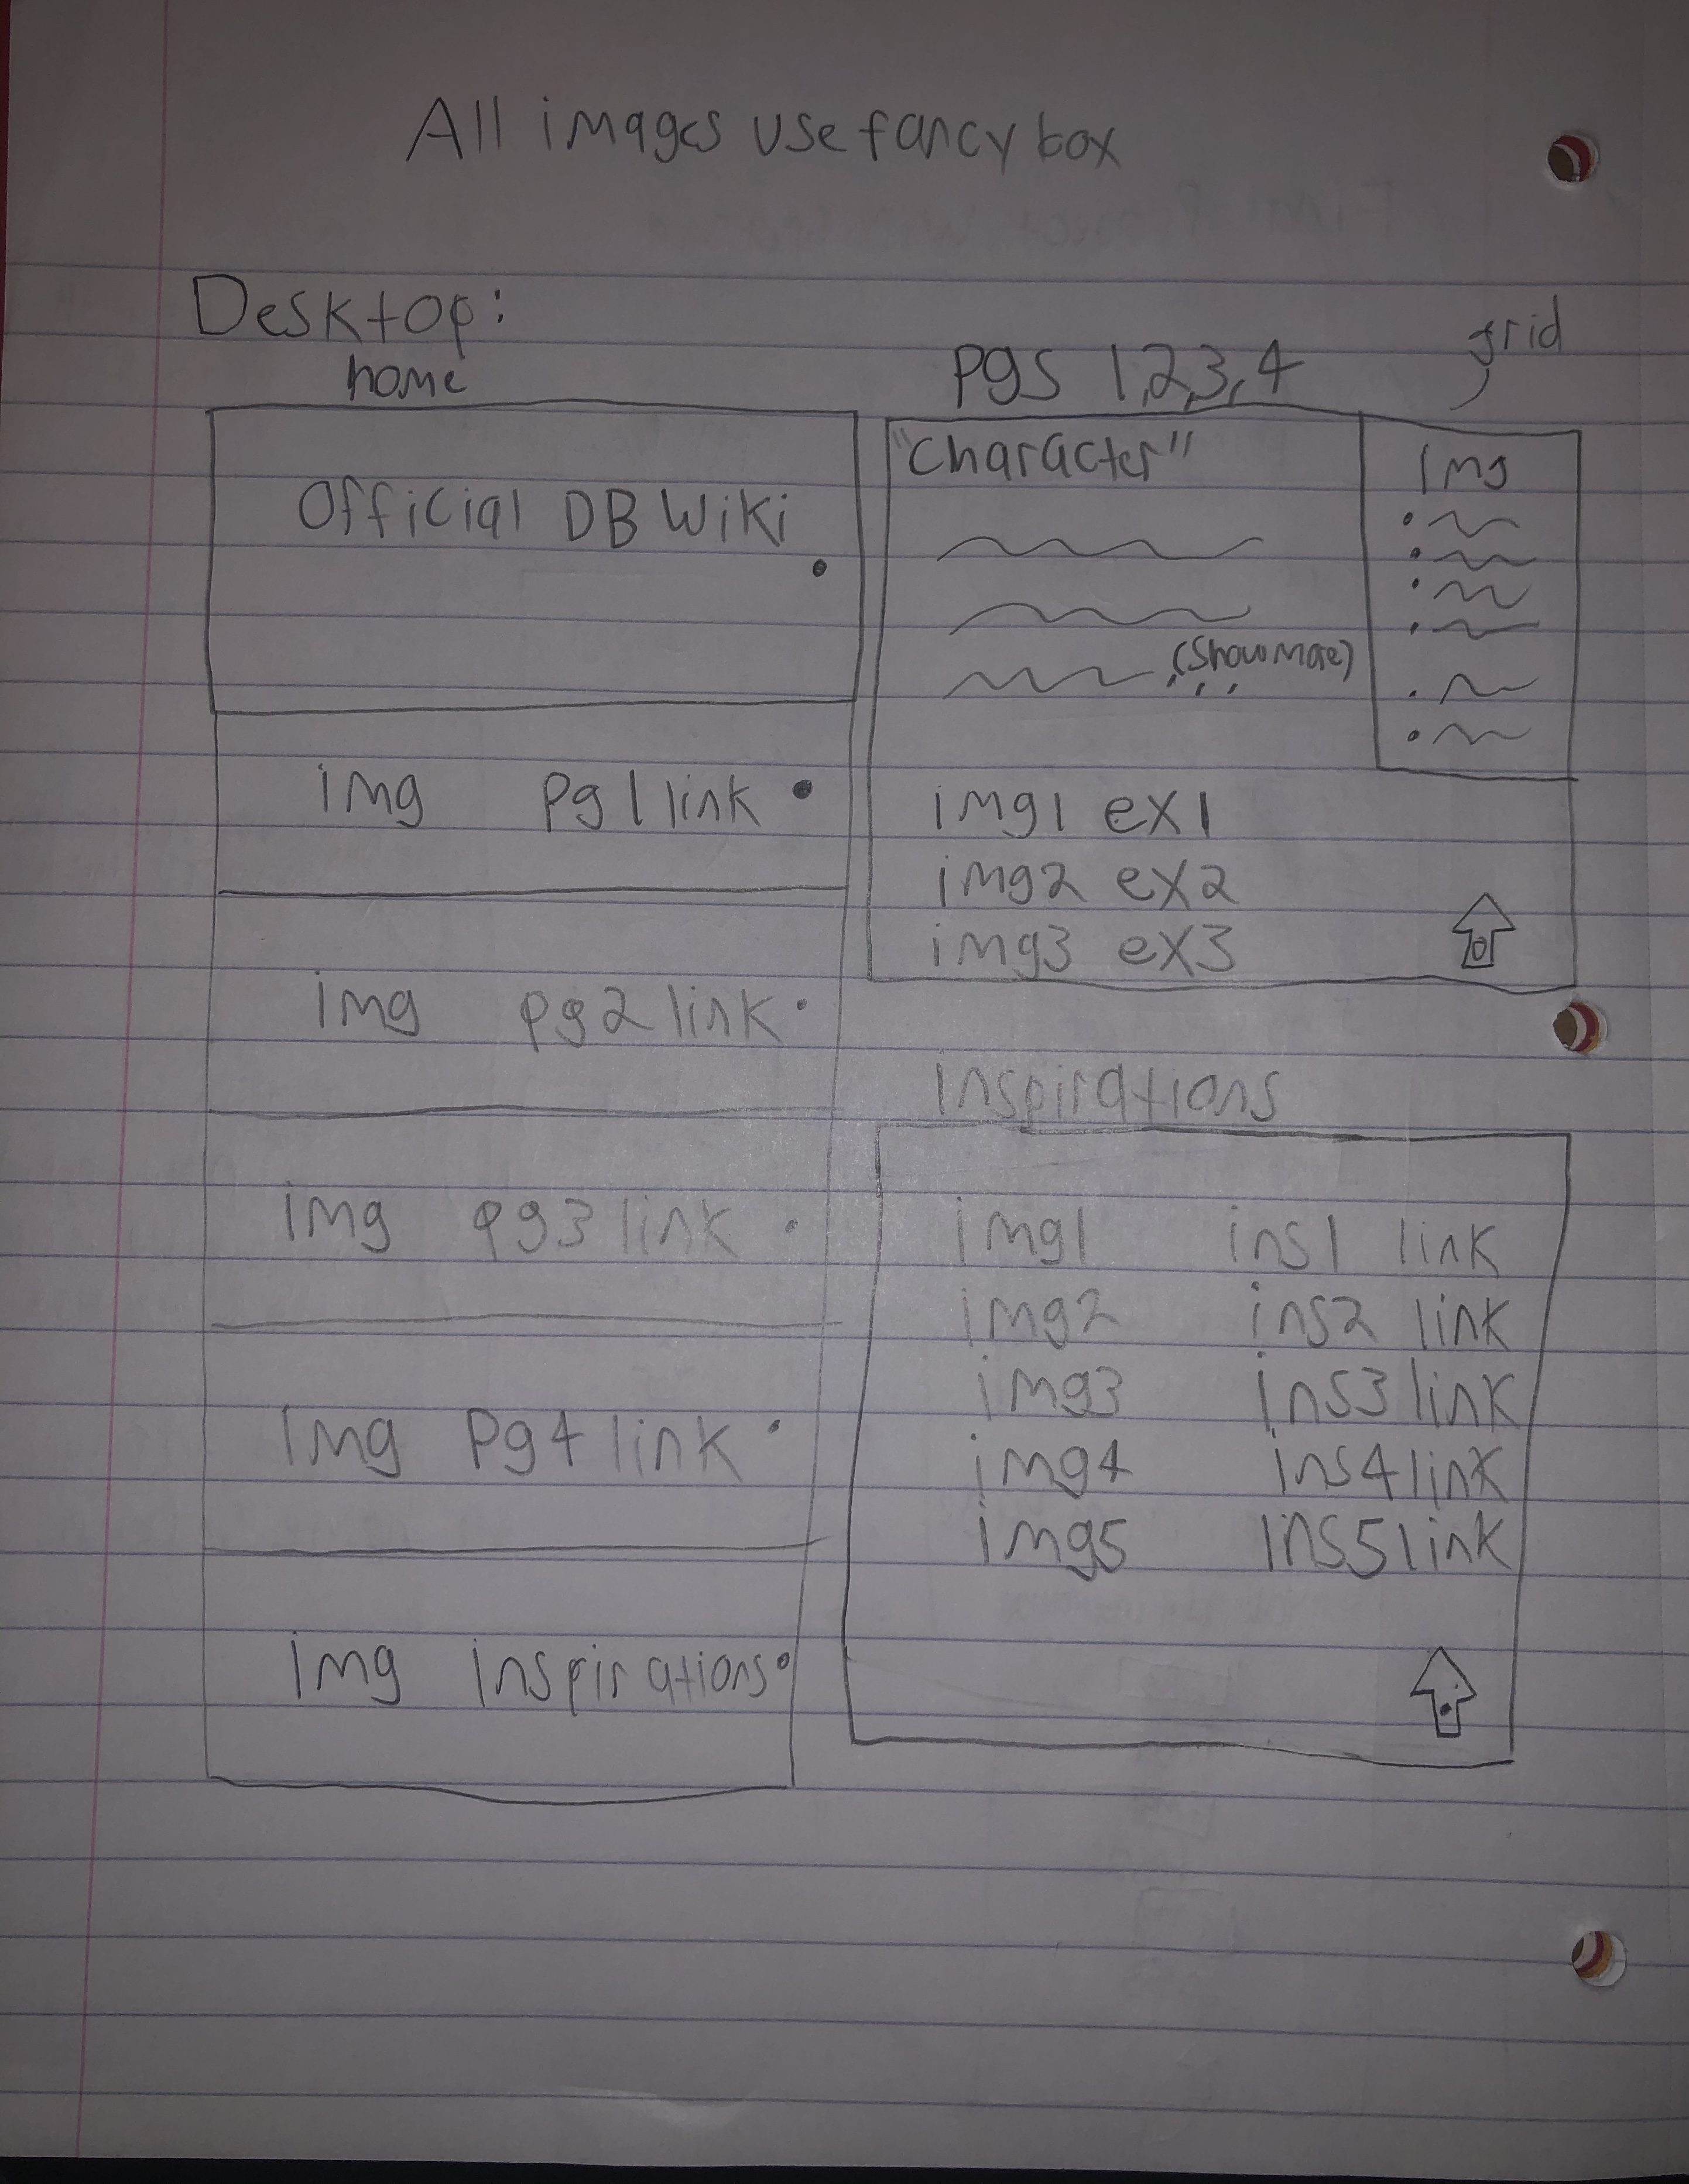 All images use fancy box
Desktop:
home
Official DB Wiki
img pg1 link
img pg2 link
img pg3 link
img pg4 link
img inspirations
grid
Pgs 1,2,3,4
"Character"
(Show More)
...
img
img1 ex1
img2 ex2
img3 ex3
Inspirations
img1 ins1 link
img2 ins2 link
img3 ins3 link
img4 ins4 link
img5 ins5 link